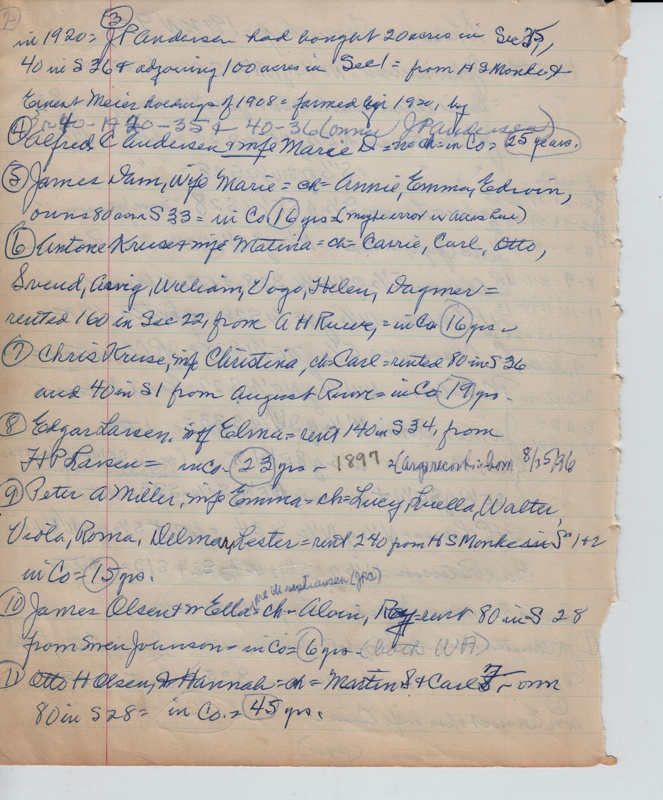 2
in 1920 = (3) J P Andersen had bought 20 acres in Sec 35,
40 in S 36 & adjoining 100 acres in Sec 1 = from H S Monke &
Ernest Meier holdings of 1908 = farmed in 1920, by
40 - 1920 - 35 & 40 - 36 (owner J P Andersen)
(4) Alfred C Andersen & wife Marie D = no ch = in Co = 25 years.
(5) James Dam, wife Marie = ch = Annie, Emma, Edwin,
owns 80 acres S 33 = in Co (16) yrs = (maybe error in acres here)
(6) Antone Kruse & wife Matina = ch = Carrie, Carl, Otto,
Svend, Arvig, William, Vogo, Helen, Dagmer =
rented 160 in Sec 22, from A H Ruwe, = in Co (16) yrs -
(7) Chris Kruse, wife Christina, ch Carl = rented 80 in S 36
and 40 in S 1 from August Ruwe = in Co (19) yrs -
(8) Edgar Larsen, wf Elma = rent 140 in S 34, from
H P Larsen = in Co - (23) yrs - 1897 = ( born 8/25/96
(9) Peter A Miller, wife Emma = ch = Lucy, Luella, Walter,
Viola, Roma, Delmar, Lester = rent 240 from H S Monke in S 1 + 2
in Co = (15) yrs.
nee Christiansen (Jpc)
(10) James Olsen & w Ella = ch - Alvin, Ray = rent 80 in S 28
from Swen Johnson = in Co = (6) yrs - (both WA)
(11) Otto H Olsen, w Hannah = ch = Martin S & Carl F - own
80 in S 28 = in Co. = (45) yrs.